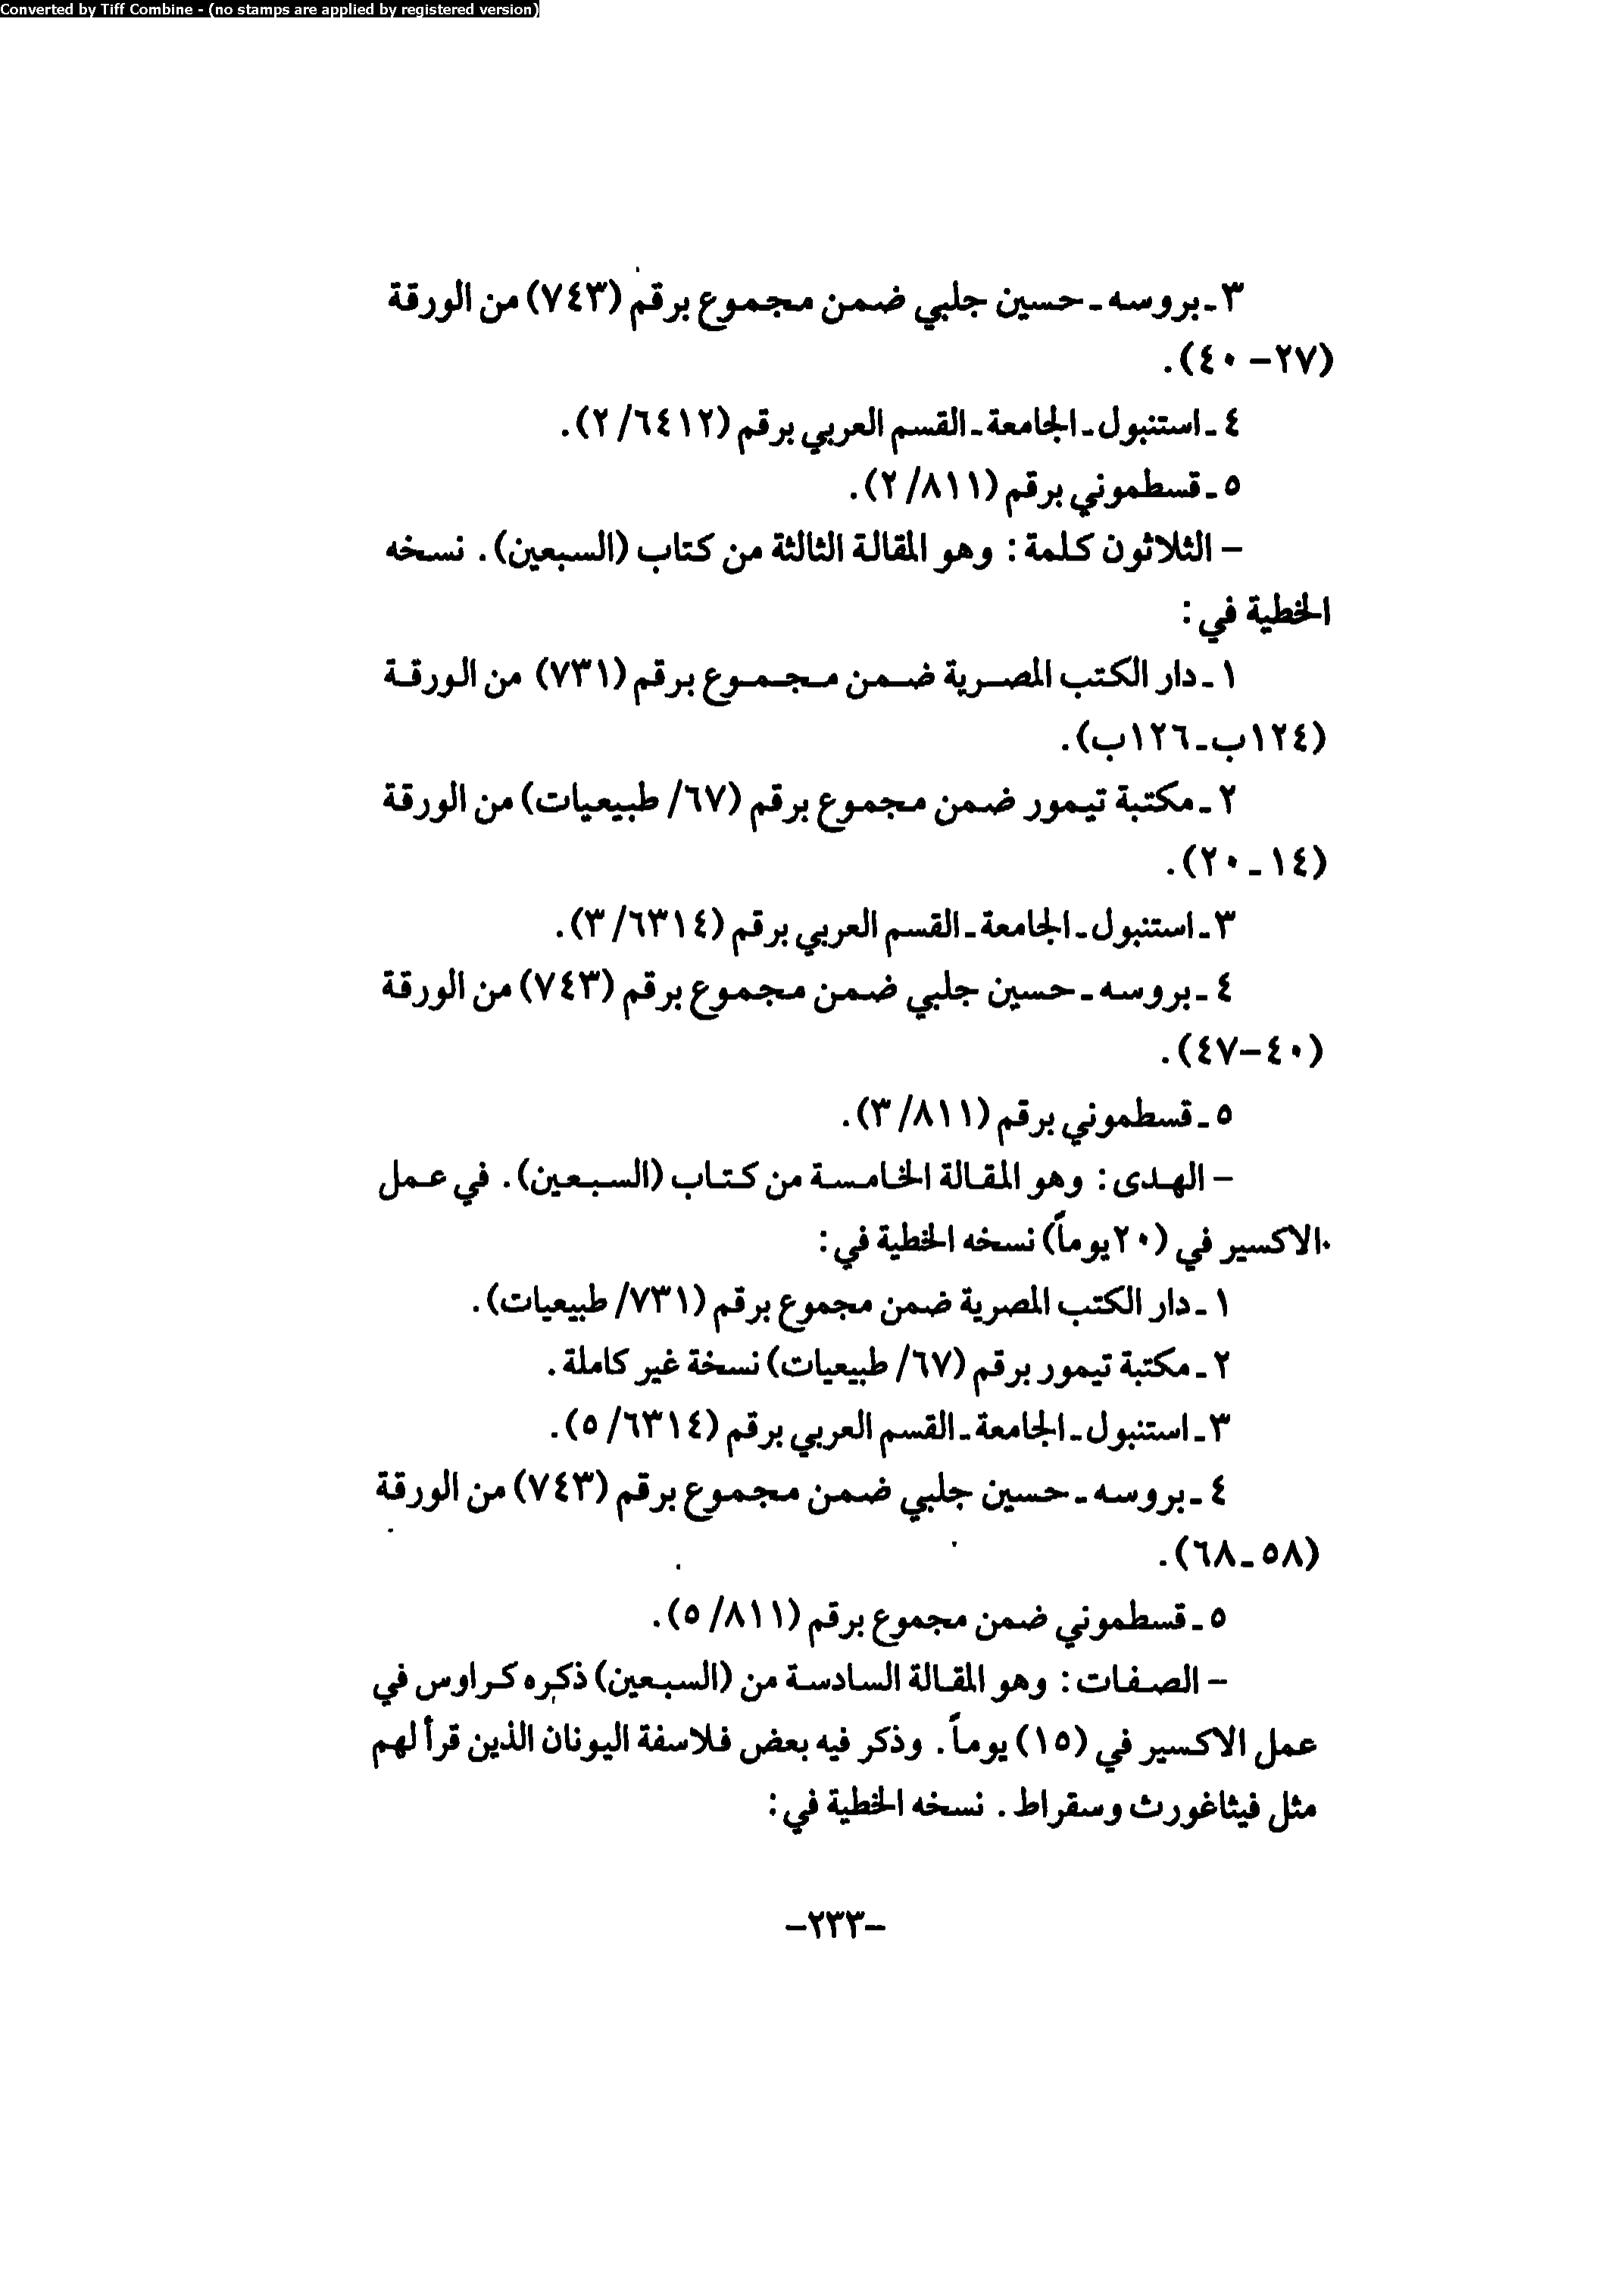 Converted by Tiff Combine - (no stamps are applied by registered version)
٣ ـ بروسه ـ حسين جلبي ضمن مجموع برقم (٧٤٣) من الورقة
(٢٧– ٤٠).
٤ ـ استنبول ـ الجامعة ـ القسم العربي برقم (٦٤١٢/ ٢).
٥ ـ قسطموني برقم (٨١١/ ٢).
– الثلاثون كلمة: وهو المقالة الثالثة من كتاب (السبعين). نسخه
الخطية في:
١ ـ دار الكتب المصرية ضمن مجموع برقم (٧٣١) من الورقة
(١٢٤ب ـ ١٢٦ب).
٢ ـ مكتبة تيمور ضمن مجموع برقم (٦٧/ طبيعيات) من الورقة
(١٤ ـ ٢٠).
٣ ـ استنبول ـ الجامعة ـ القسم العربي برقم (٦٣١٤/ ٣).
٤ ـ بروسه ـ حسين جلبي ضمن مجموع برقم (٧٤٣) من الورقة
(٤٠–٤٧).
٥ ـ قسطموني برقم (٨١١/ ٣).
– الهدى: وهو المقالة الخامسة من كتاب (السبعين). في عمل
الاكسير في (٢٠يوماً) نسخه الخطية في:
١ ـ دار الكتب المصرية ضمن مجموع برقم (٧٣١/ طبيعيات).
٢ ـ مكتبة تيمور برقم (٦٧/ طبيعيات) نسخة غير كاملة.
٣ ـ استنبول ـ الجامعة ـ القسم العربي برقم (٦٣١٤/ ٥).
٤ ـ بروسه ـ حسين جلبي ضمن مجموع برقم (٧٤٣) من الورقة
(٥٨ ـ ٦٨).
٥ ـ قسطموني ضمن مجموع برقم (٨١١/ ٥).
– الصفات: وهو المقالة السادسة من (السبعين) ذكره كراوس في
عمل الاكسير في (١٥) يوماً. وذكر فيه بعض فلاسفة اليونان الذين قرأ لهم
مثل فيثاغورث وسقراط. نسخه الخطية في:
–٢٣٣–